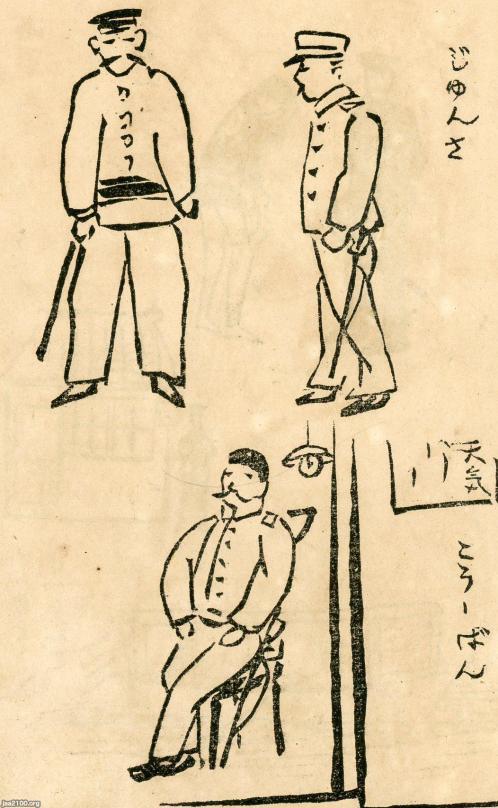 じゅんさ
天気
こうーばん
jaa2100.org